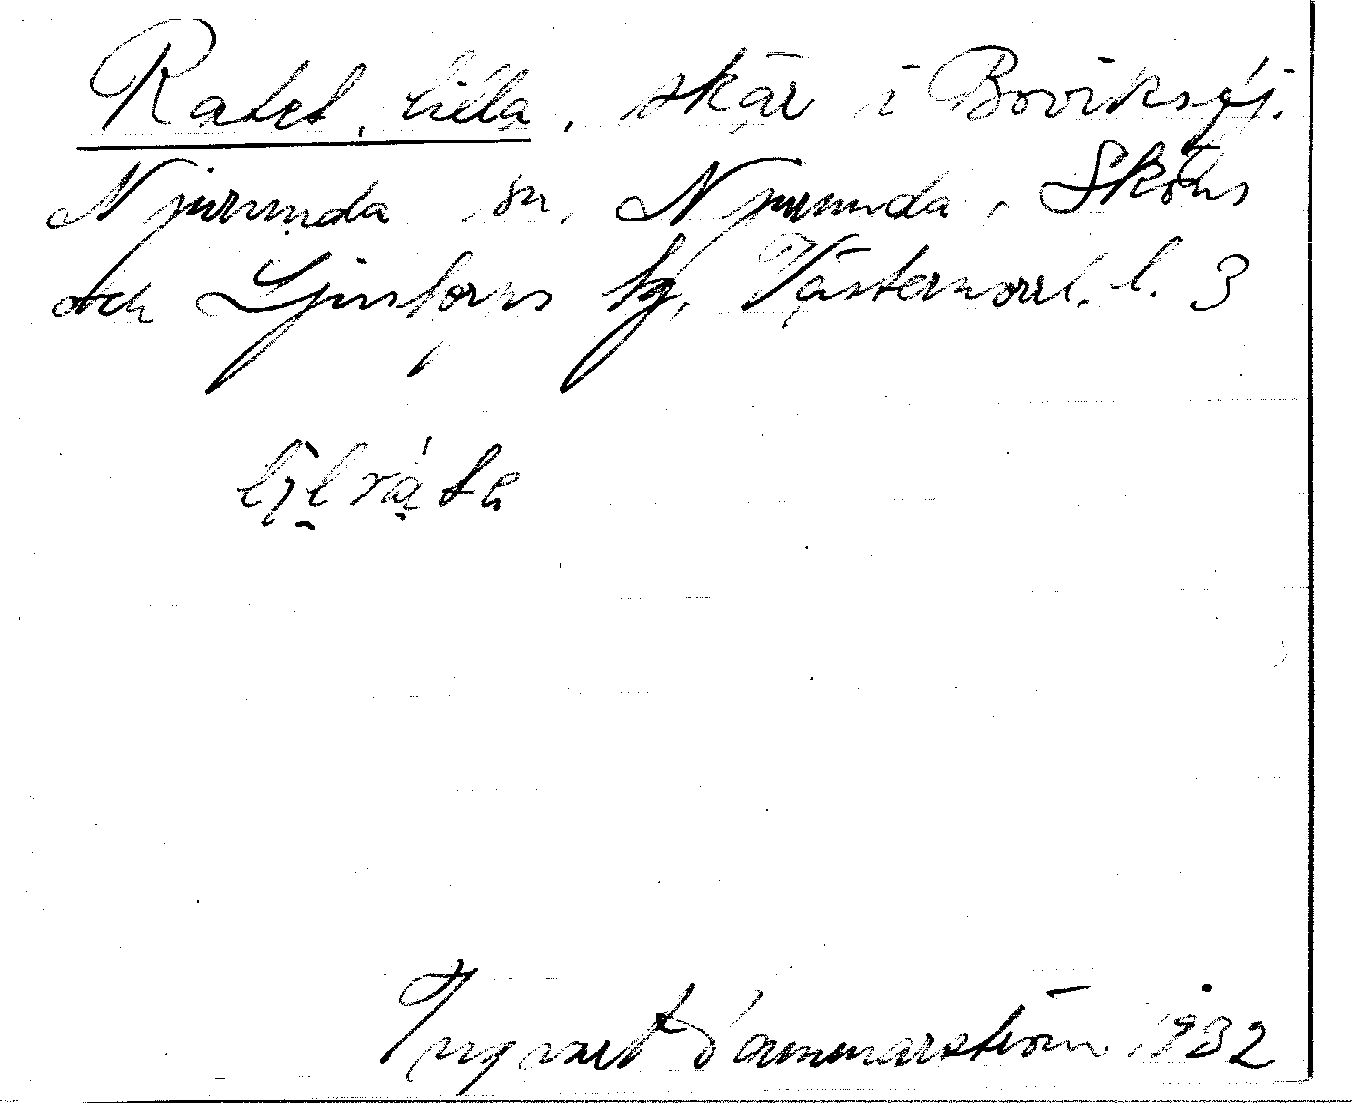 Ratet, lilla, skär i Bovikssj.
Njurunda sn, Njurunda, Sköns
och Ljustorps tg, Västernorrl. l. 3
Ingvart Hammarström 1932